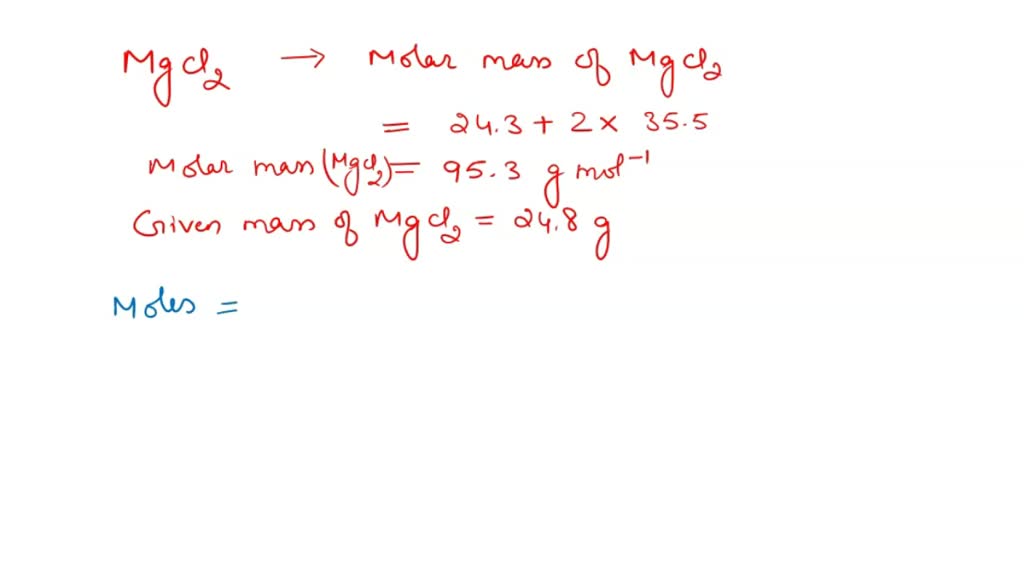 MgCl₂ → Molar mass of MgCl₂
= 24.3 + 2 × 35.5
Molar mass (MgCl₂) = 95.3 g mol⁻¹
Given mass of MgCl₂ = 24.8 g
Moles =